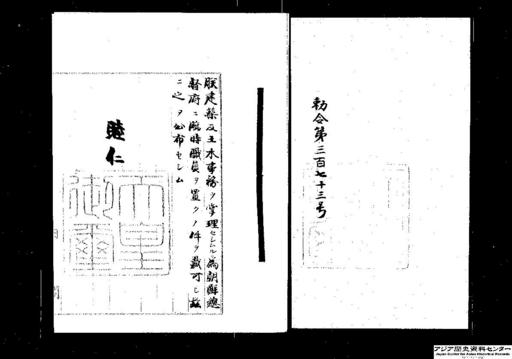 勅令第三百七十三号
朕建築及土木事務ヲ掌理セシムル為朝鮮總
督府ニ臨時職員ヲ置クノ件ヲ裁可シ茲
ニ之ヲ公布セシム
睦仁
天皇
御璽
アジア歴史資料センター
Japan Center for Asian Historical Records